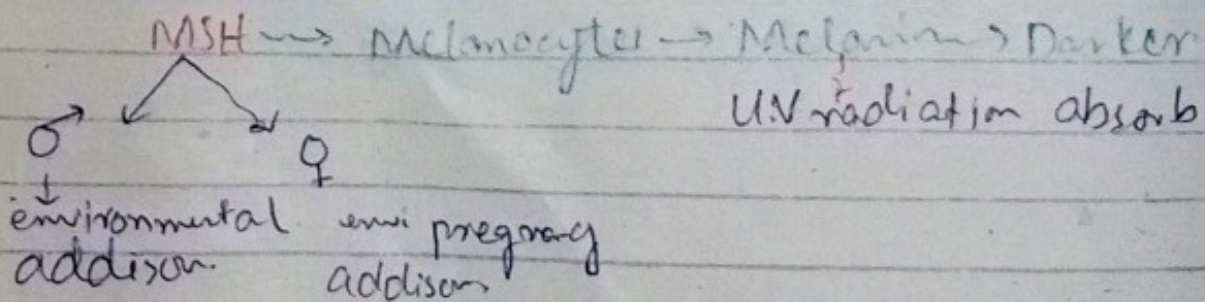 MSH → Melanocytes → Melanin → Darker
U.V radiation absorb
♂ ♀
environmental envi pregnancy
addison. addison